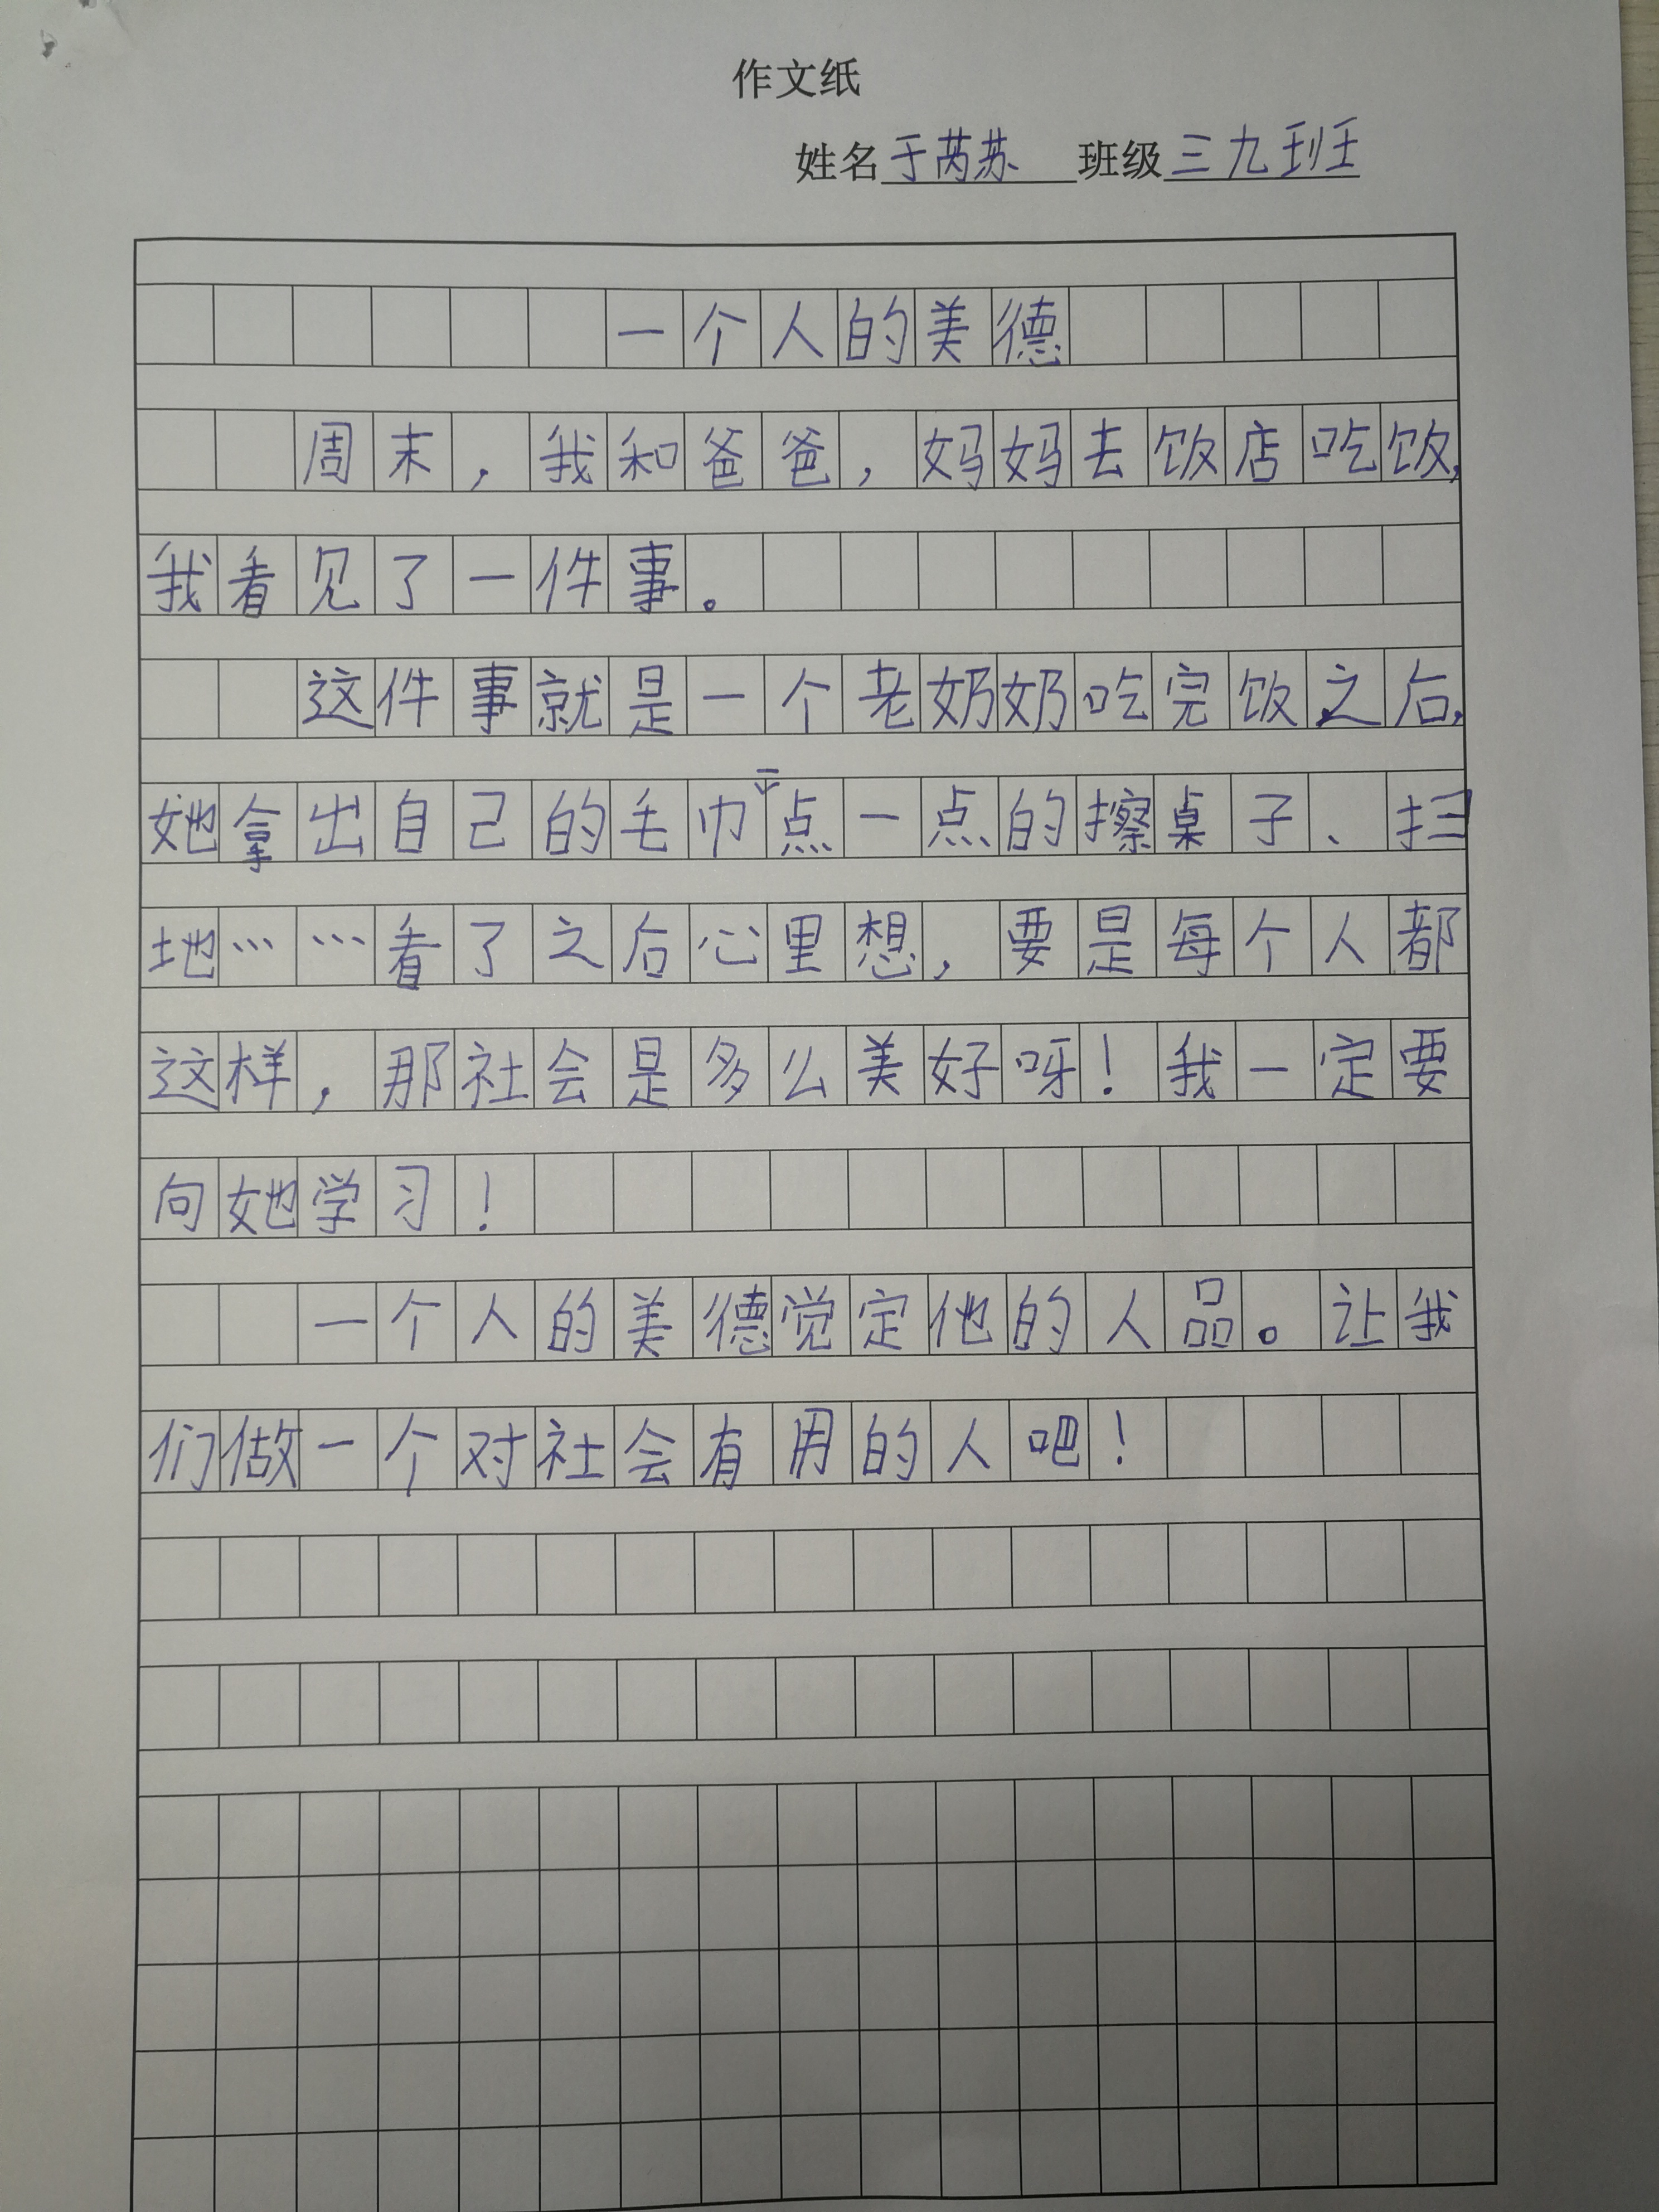 作文纸
姓名于芮苏 班级三九班
一个人的美德
周末，我和爸爸，妈妈去饭店吃饭，
我看见了一件事。
这件事就是一个老奶奶吃完饭之后，
她拿出自己的毛巾一点一点的擦桌子、扫
地……看了之后心里想，要是每个人都
这样，那社会是多么美好呀！我一定要
向她学习！
一个人的美德觉定他的人品。让我
们做一个对社会有用的人吧！